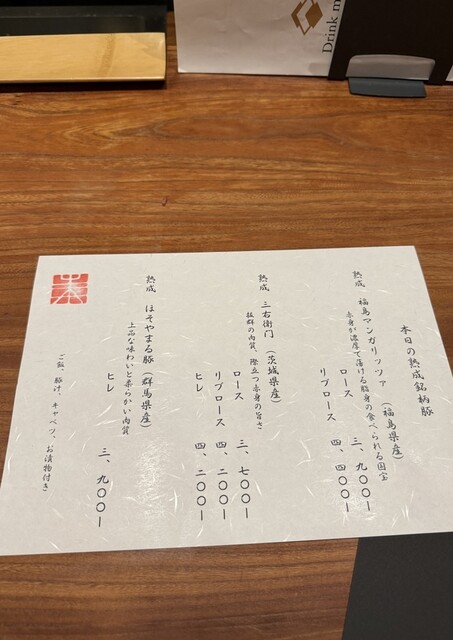 本日の熟成銘柄豚
熟成 福島マンガリッツァ (福島県産)
赤身が濃厚で蕩ける脂身の食べられる国宝
ロース 三、九〇〇ー
リブロース 四、四〇〇ー
熟成 三右衛門 (茨城県産)
抜群の肉質、際立つ赤身の旨さ
ロース 三、七〇〇ー
リブロース 四、二〇〇ー
ヒレ 四、二〇〇ー
熟成 ほそやまる豚 (群馬県産)
上品な味わいと柔らかい肉質
ヒレ 三、九〇〇ー
ご飯、豚汁、キャベツ、お漬物付き
Drink m